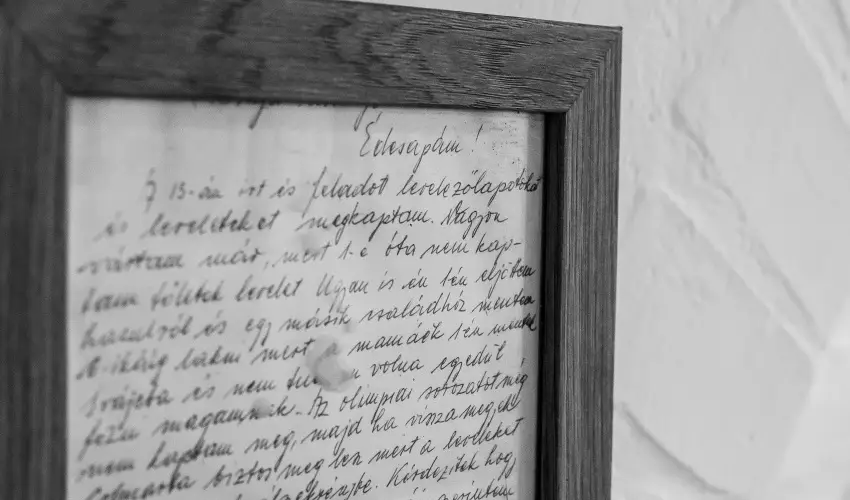 Édesapám!
A 13-án írt és feladot levelezőlapotokat
és leveleteket megkaptam. Nagyon
vártam már, mert 1-e óta nem kap-
tam tőletek levelet Ugyan is én 1én eljöttem
és egy másik családhóz mentem
lakni mert a mamáék 1én mentek
Svájcba és nem volna egyedül
főzni magamnak. Az olimpiai sorozatot még
nem kaptam meg, majd ha vissza megyek
biztos meg lesz mert a leveleket
Kérdezitek hogy